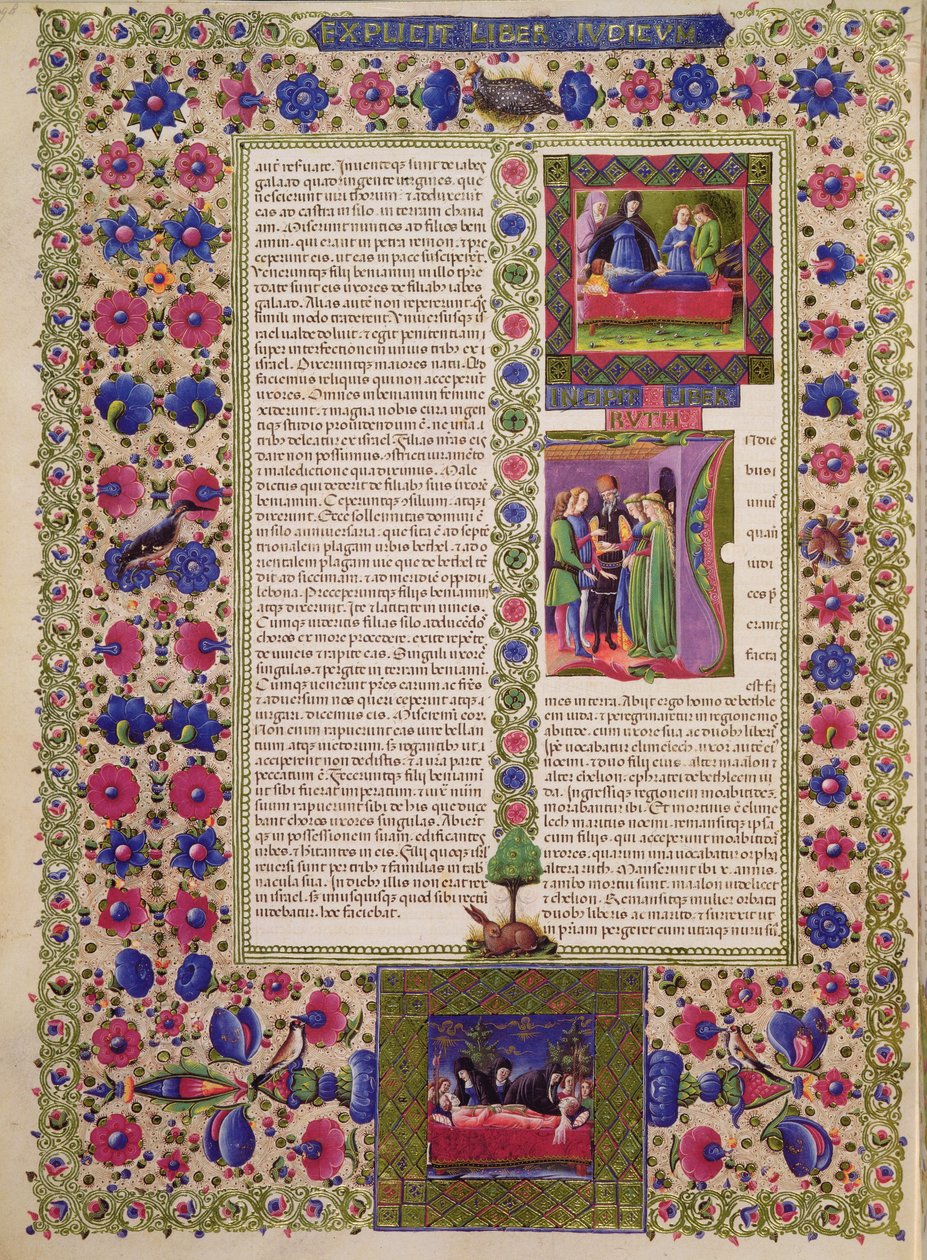 EXPLICIT LIBER IVDICVM
aut refutate. Inventeqz sunt de iabes
galaad quadringente virgines. que
nescierunt viri thorum: & adduxerunt
eas ad castra in silo. in terram chana
am. Miserunt nuntios ad filios benia
min. qui erant in petra remon. & pre
ceperunt eis. ut eas in pace susciperent.
Veneruntqz filij beniamin in illo tpre
& date sunt eis uxores de filiabus iabes
galaad. Alias autem non repererunt. qs
simili modo traderent. Vniversusqz is
rael valde doluit. & egit penitentiam
super interfectionem unius tribus ex i
israel. Dixeruntqz maiores natu. Qd
faciemus reliquis qui non acceperunt
uxores. Omnes in beniamin femine
xiderunt. & magna nobis cura ingen
tiqz studio providendum est. ne una
tribus deleatur ex israel. Filias nras eis
dare non possumus. stricti iuramento
& maledictione qua diximus. Male
dictus qui dederit de filiabus suis uxorem
beniamin. Ceperuntqz silium. atqz
dixerunt. Ecce sollemnitas domini est
in silo anniversaria. que sita est ad septe
trionalem plagam urbis bethel. & ad o
rientalem plagam vie que de bethel ten
dit ad siccimam. & ad meridiem oppidi
lebona. Preceperuntqz filijs beniamin
atqz dixerunt. Ite & latitate in vineis.
Cumqz videritis filias silo ad ducendos
choros ex more procedere. exite repente
de vineis & rapite eas. Singuli uxores
singulas. & pergite in terram beniamin.
Cumqz venerint patres earum ac fratres
& adversum nos queri ceperint atqz i
urgari. dicemus eis. Miseremini eorum.
Non enim rapuerunt eas iure bellan
tium atqz victorum. sz rogantibus ut a
cciperent non dedistis. & a vra parte
peccatum est. Feceruntqz filij beniamin
ut sibi fuerat imperatum. & iuxta numerum
suum rapuerunt sibi de his que duce
bant choros uxores singulas. Abierunt
qz in possessionem suam. edificantes
urbes. & habitantes in eis. Filij quoqz isrl
reversi sunt per tribus & familias in tab
nacula sua. In diebus illis non erat rex
in israel. sz unusquisqz quod sibi rectum
videbatur. hoc faciebat.
INCIPIT LIBER
RVTH
N DIE
bus i
unius
quan
iudi
ces p
erant
facta
est fa
mes in terra. Abijt ergo homo de bethle
em iuda. & peregrinaretur in regione mo
abitide. cum uxore sua ac duobus liberis.
Ipse vocabatur elimelech. uxor autem eius
noemi. & duo filij eius. alter maalon &
alter chelion. ephratei de bethleem iu
da. Ingressiqz regionem moabitidem
morabantur ibi. Et mortuus est elime
lech maritus noemi. remansitqz ipsa
cum filijs. qui acceperunt moabitidas
uxores. quarum una vocabatur orpha
altera ruth. Manseruntqz ibi x. annis.
& ambo mortui sunt. maalon videlicet
& chelion. Remansitqz mulier orbata
duobus liberis ac marito. & surrexit ut
in priam pergeret cum utraqz nuru sua